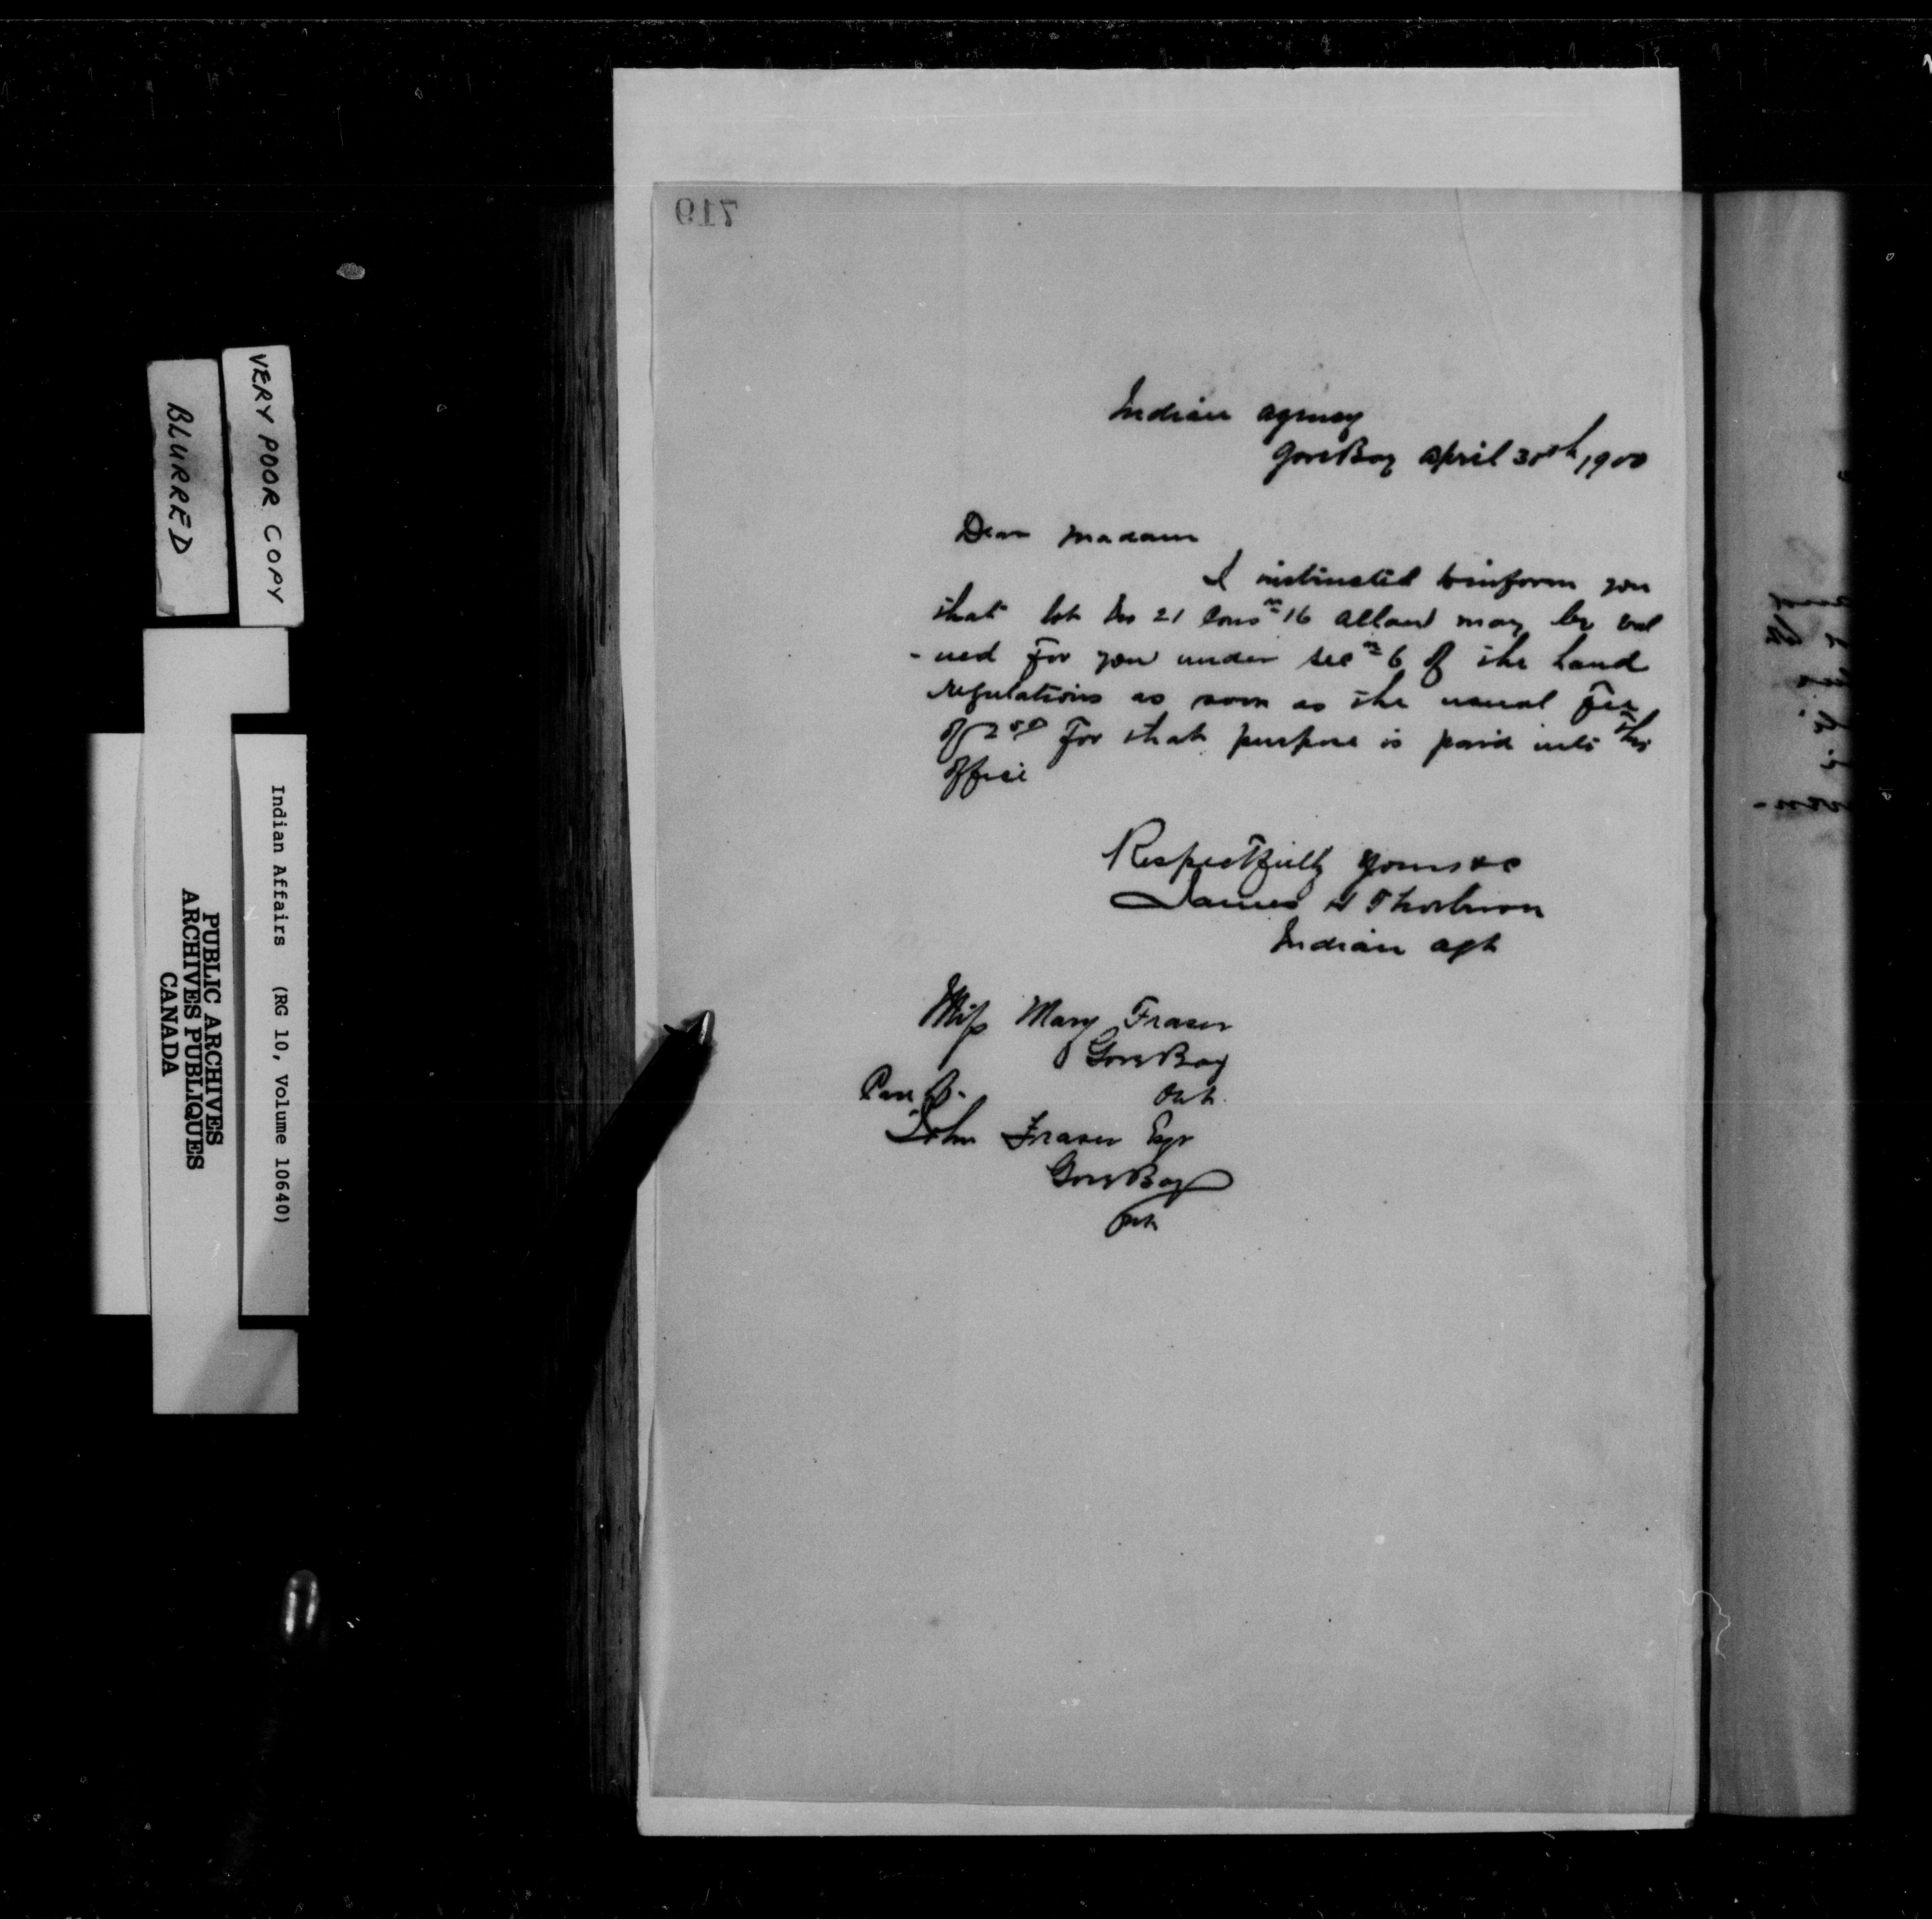 VERY POOR COPY
BLURRED
Indian Affairs (RG 10, Volume 10640)
PUBLIC ARCHIVES
ARCHIVES PUBLIQUES
CANADA
617
Indian Agency
GoreBay April 30th, 1900
Dear Madam
I instructed to inform you
that lot No 21 Cons n 16 Allan may be val
-ued For you under sec n 6 of the Land
regulations as soon as the usual Fee
of 2 50 For that purpose is paid into this
office
Respectfully yours &c
James H Thorburn
Indian Agt
Miss Mary Fraser
GoreBay
Ont.
John Fraser Esqr
GoreBay
Ont